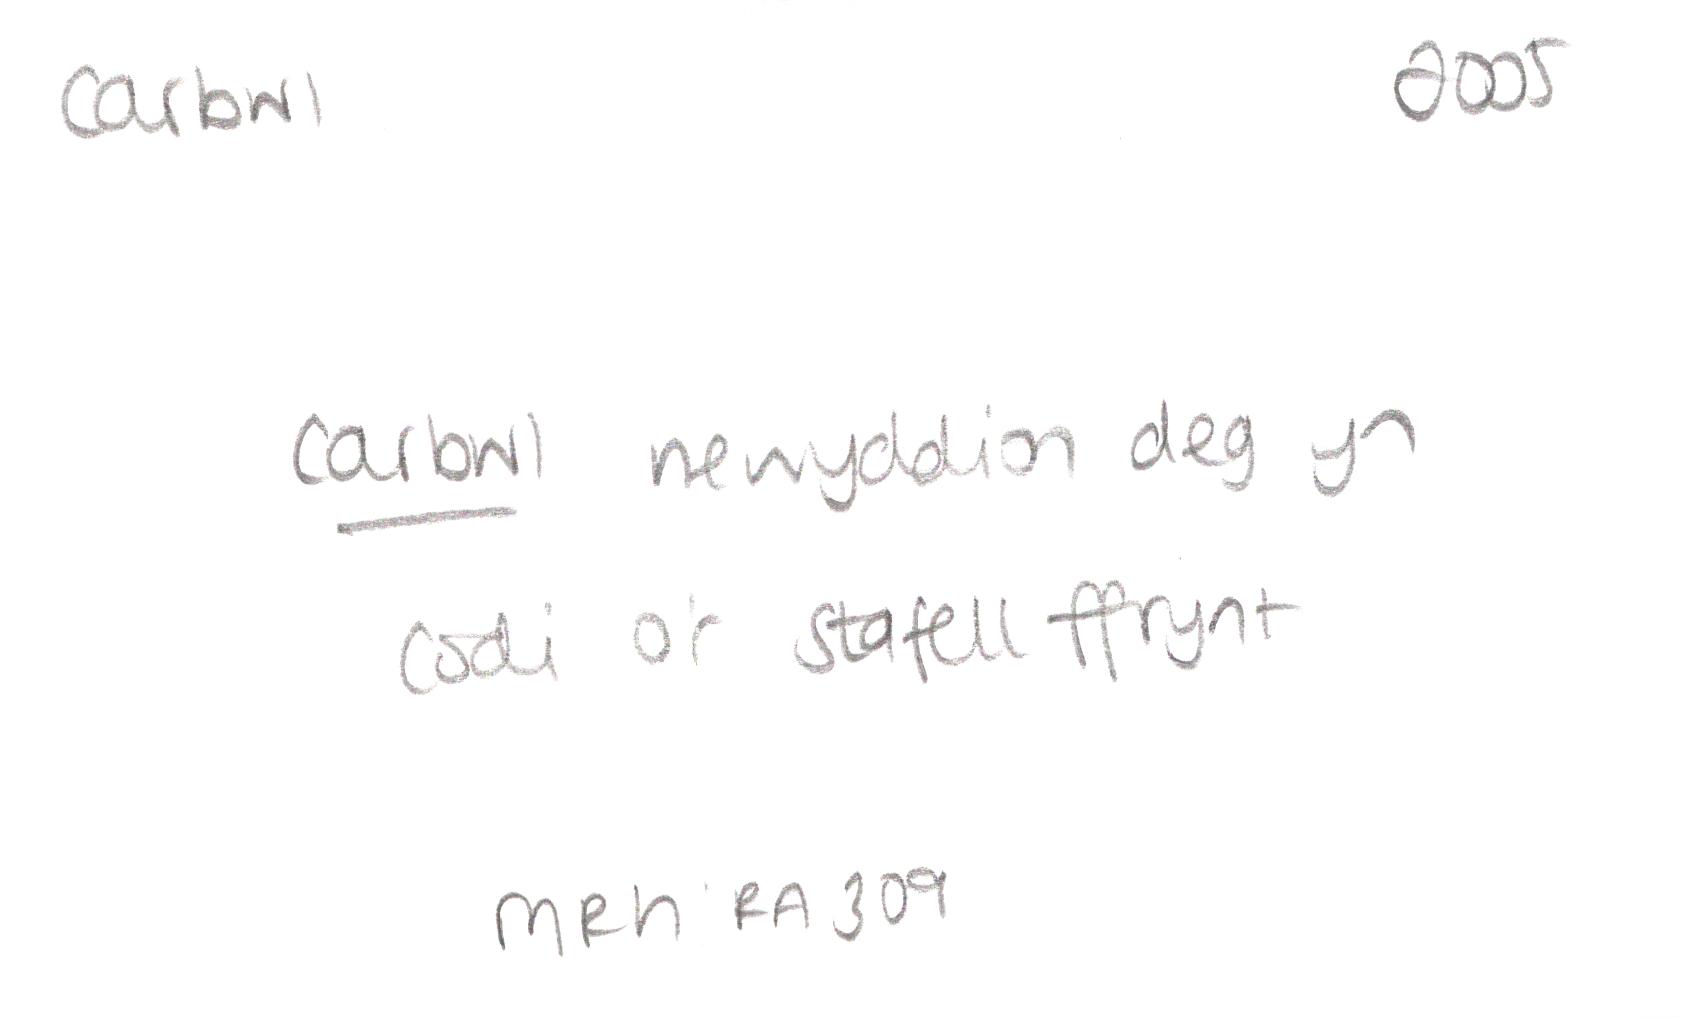 carbwl 2005
carbwl newyddion deg yn
codi o'r stafell ffrynt
MRh: RA 309